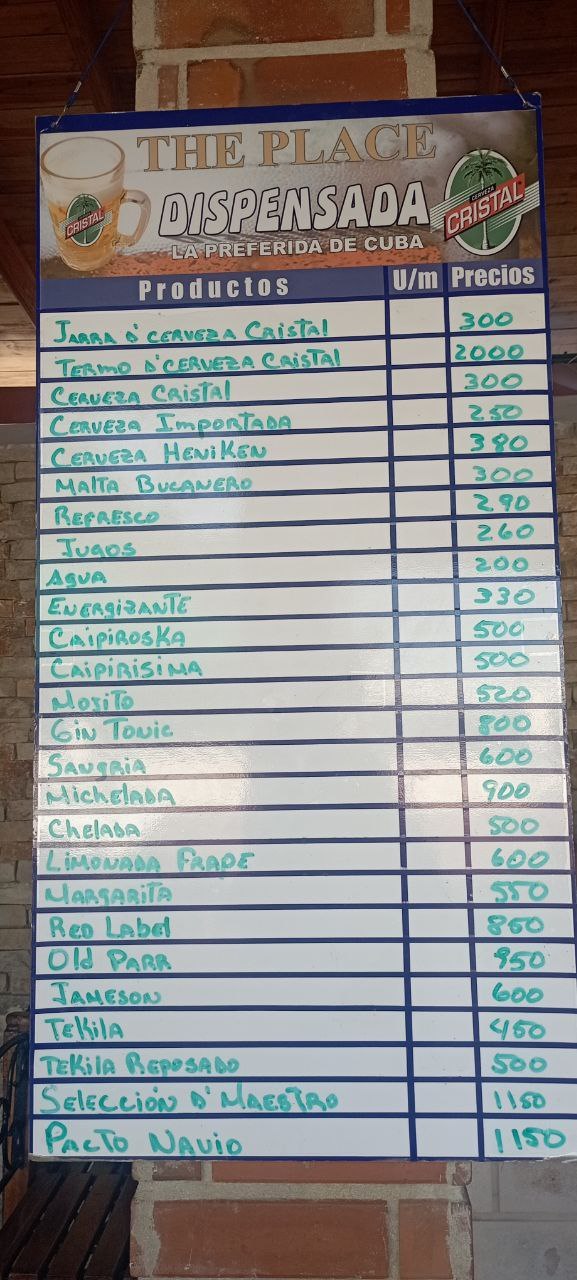 THE PLACE
DISPENSADA
LA PREFERIDA DE CUBA
CRISTAL
CERVEZA
CRISTAL
Productos U/m Precios
JARRA D' CERVEZA CRISTAL 300
TERMO D' CERVEZA CRISTAL 2000
CERVEZA CRISTAL 300
CERVEZA IMPORTADA 250
CERVEZA HENIKEN 380
MALTA BUCANERO 300
REFRESCO 290
JUGOS 260
AGUA 200
ENERGIZANTE 330
CAIPIROSKA 500
CAIPIRISIMA 500
MOJITO 520
Gin Tonic 800
SANGRIA 600
MichelADA 900
ChelADA 500
LIMONADA FRAPE 600
MARGARITA 550
RED LABEl 850
Old PARR 950
JAMESON 600
TEKILA 450
TEKILA REPOSADO 500
SELECCIÓN D' MAESTRO 1150
PACTO NAVIO 1150